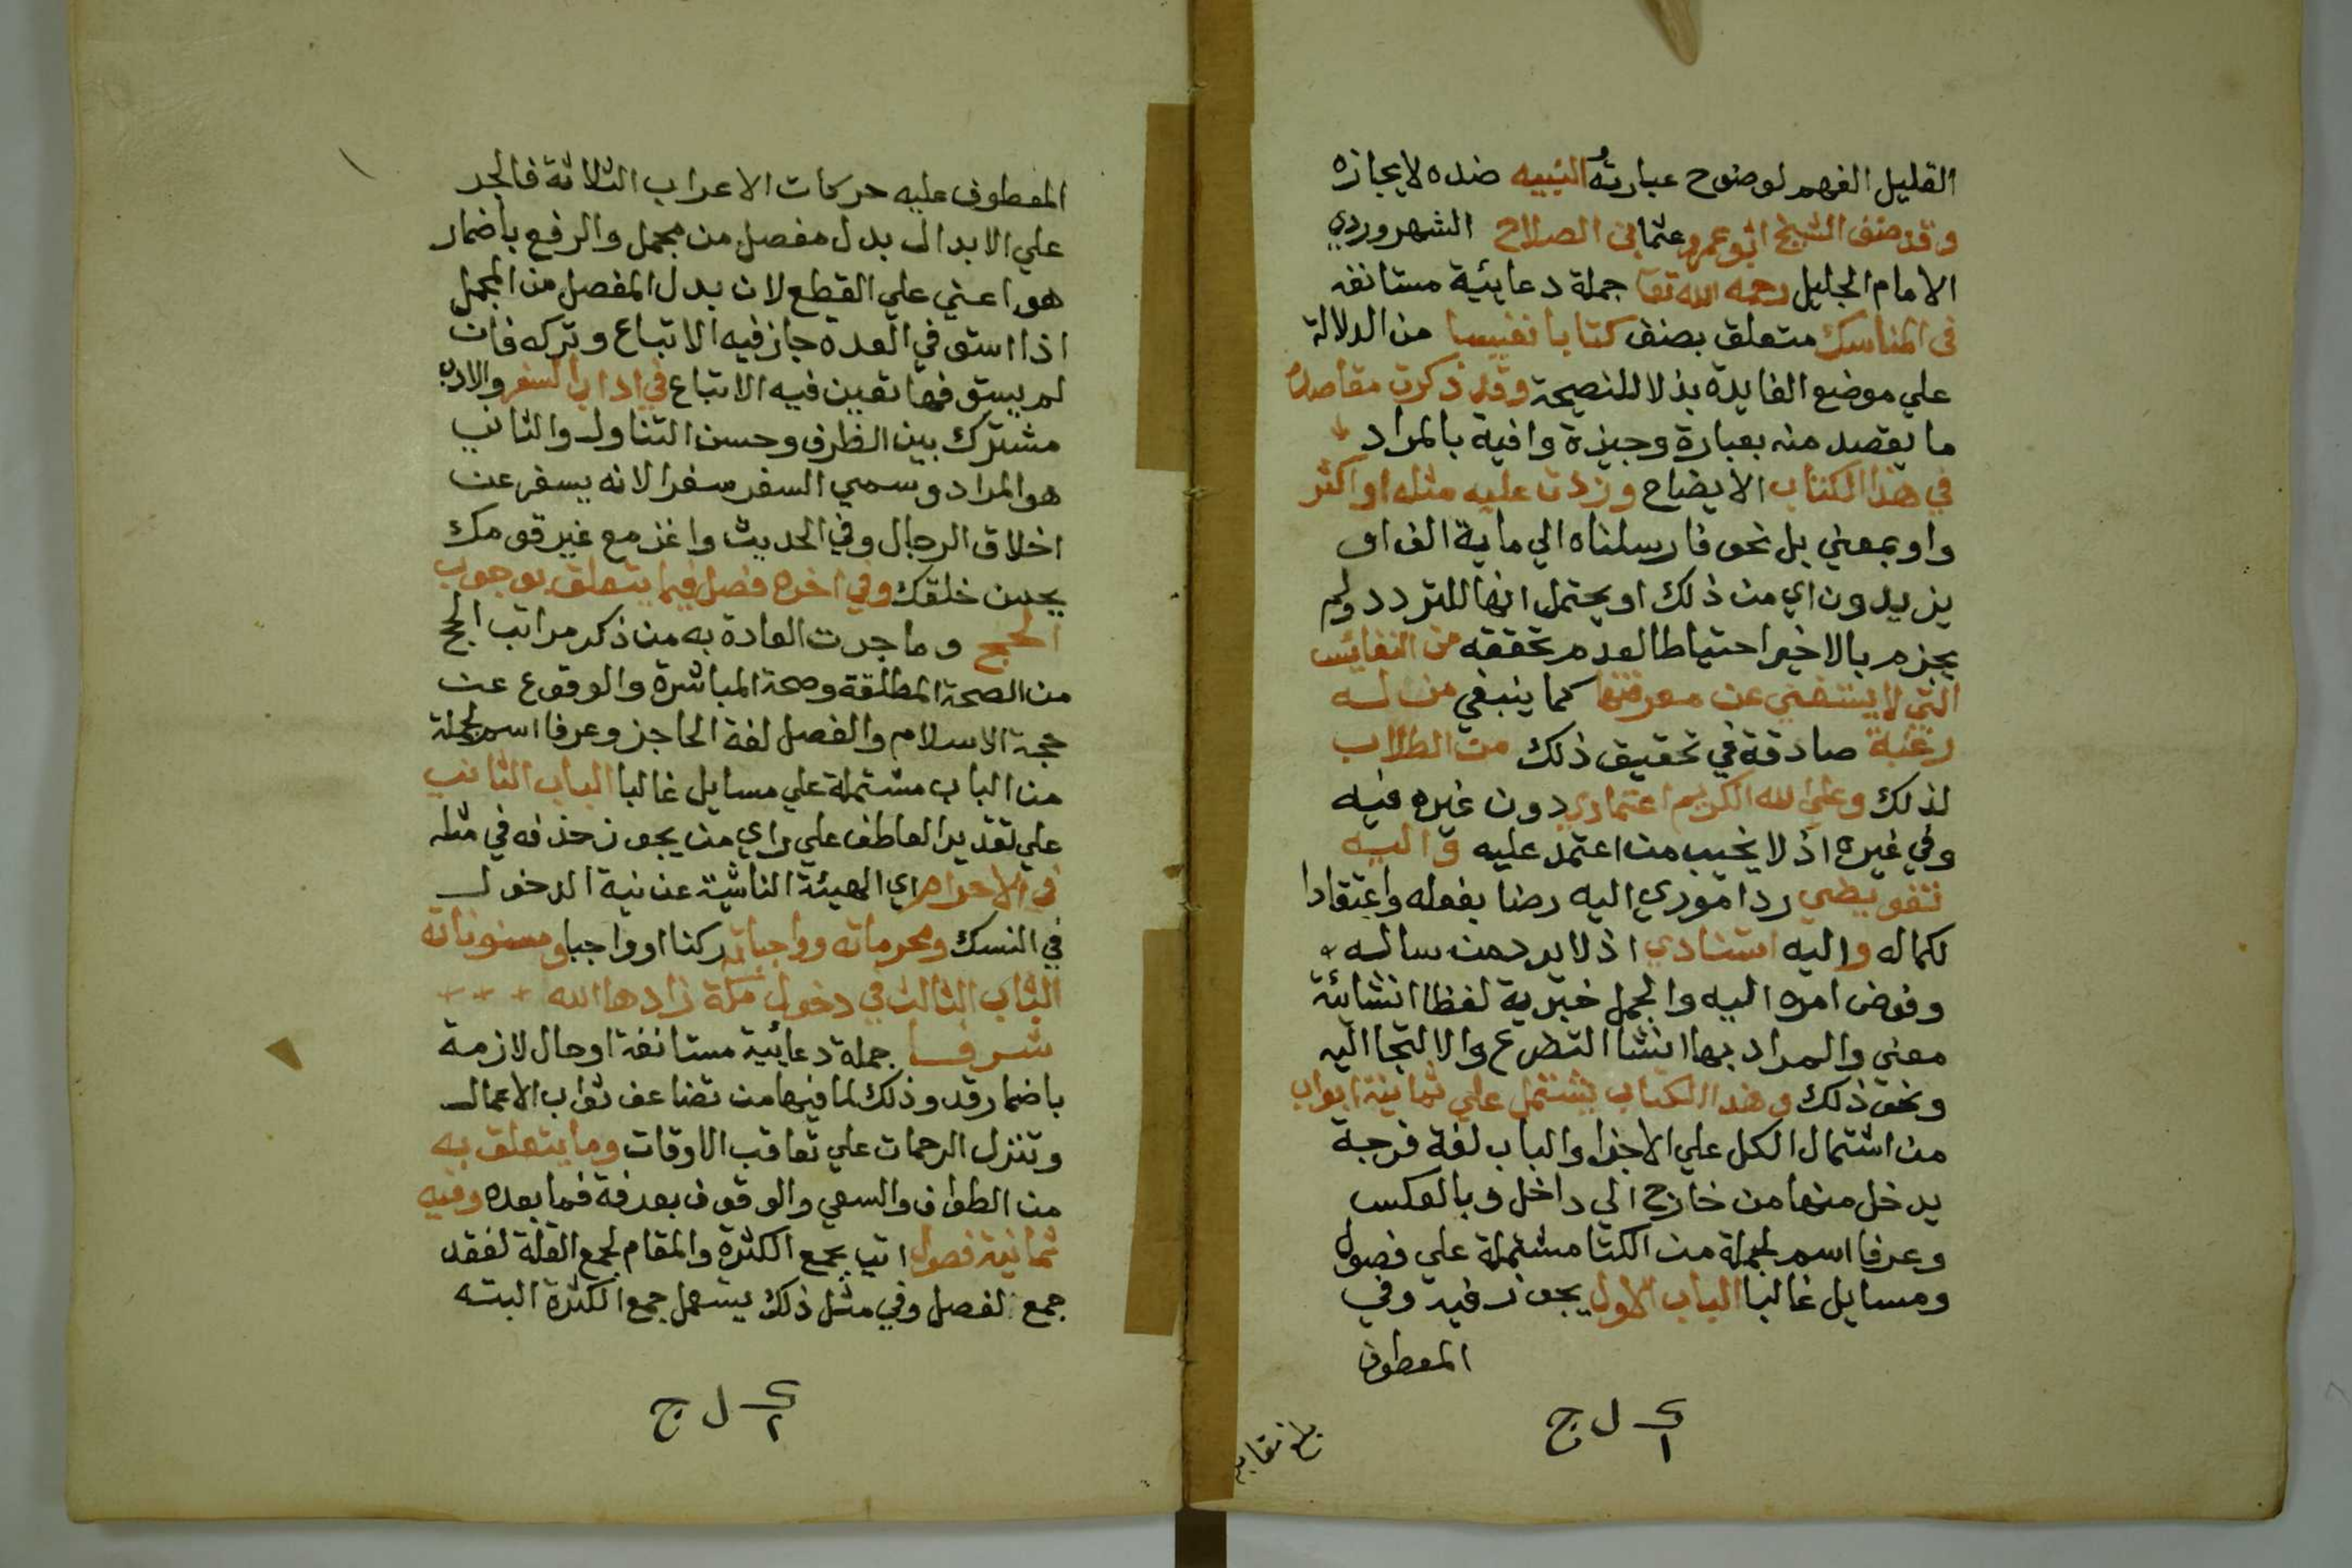 القليل الفهم لوضوح عبارته و النبيه ضده لايجازه
وقد صنف الشيخ ابو عمرو عثمان بن الصلاح الشهروردي
الامام الجليل رحمه الله تعا جملة دعايئة مستانفه
في المناسك متعلق بصنف كتابا نفيسا من الدلالة
علي موضع الفايدة بذلا للنصيحة وقد ذكرت مقاصده
ما يقصد منه بعبارة وجيزة وافية بالمراد
في هذا الكتاب الايضاح وزدت عليه مثله او اكثر
واو بمعني بل نحو فارسلناه الي ماية الف او
يزيدون اي من ذلك او يحتمل انها للتردد ولم
يجزم بالاخير احتياطا لعدم تحققه من النفايس
التي لا يستغني عن معرفتها كما ينبغي من له
رغبة صادقة في تحقيق ذلك من الطلاب
لذلك وعلي الله الكريم اعتمادي دون غيره فيه
وفي غيره اذ لا يخيب من اعتمد عليه واليه
تفويضي رد اموري اليه رضا بفعله واعتقادا
لكماله واليه استنادي اذ لا يرد من ساله
وفوض امره اليه والجمل خبرية لفظا انشائئة
معني والمراد بها انشا التضرع والالتجا اليه
ونحو ذلك وهذا الكتاب يشتمل علي ثمانية ابواب
من اشتمال الكل علي الاجزا والباب لغة فرجة
يدخل منها من خارج الي داخل وبالعكس
وعرفا اسم لجملة من الكتا مشتملة علي فصول
ومسايل غالبا الباب الاول يجوز فيه وفي
المعطوف
ك ل ج
١
بلغ مقابلة
المعطوف عليه حركات الاعراب الثلاثة فالجر
علي الابدال بدل مفصل من مجمل والرفع باضمار
هو اعني علي القطع لان بدل المفصل من المجمل
اذا استوفي العدة جاز فيه الاتباع وتركه فان
لم يستوفها تعين فيه الاتباع في اداب السفر والادب
مشترك بين الظرف وحسن التناول والثاني
هو المراد وسمي السفر سفرا لانه يسفر عن
اخلاق الرجال وفي الحديث واغز مع غير قومك
يحسن خلقك وفي اخره فصل فيما يتعلق بوجوب
الحج وما جرت العادة به من ذكر مراتب الحج
من الصحة المطلقة وصحة المباشرة والوقوع عن
حجة الاسلام والفصل لغة الحاجز وعرفا اسم لجملة
من الباب مشتملة علي مسايل غالبا الباب الثاني
علي تقدير العاطف علي راي من يجوز حذفه في مثله
في الاحرام اي الهيئة الناشئة عن نية الدخول
في النسك ومحرماته وواجباته ركنا او واجبا ومسنوناته
الباب الثالث في دخول مكة زادها الله
شرفا جملة دعائية مستانفة او حال لازمة
باضمار قد وذلك لما فيها من تضاعف ثواب الاعمال
وتنزل الرحمات علي تعاقب الاوقات وما يتعلق به
من الطواف والسعي والوقوف بعرفة فما بعده وفيه
ثمانية فصول اتي بجمع الكثرة والمقام لجمع القلة لفقد
جمع لفصل وفي مثل ذلك يستعمل جمع الكثرة البته
ك ل ج
٢